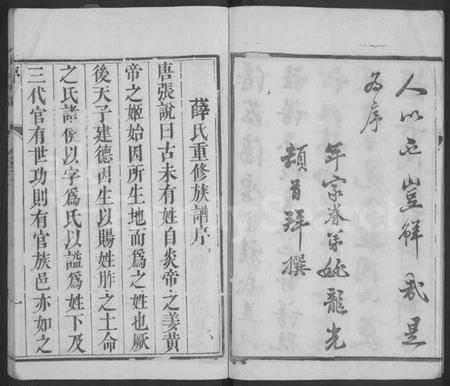 人以
豈鮮我是
為序
年家眷弟姚龍光
頓首拜撰
薛氏重修族譜序
唐張說曰古未有姓自炎帝之姜黃
帝之姬始因所生地而為之姓也厥
後天子建德因生以賜姓胙之土命
之氏諸侯以字為氏以謚為姓下及
三代官有世功則有官族邑亦如之
序
一